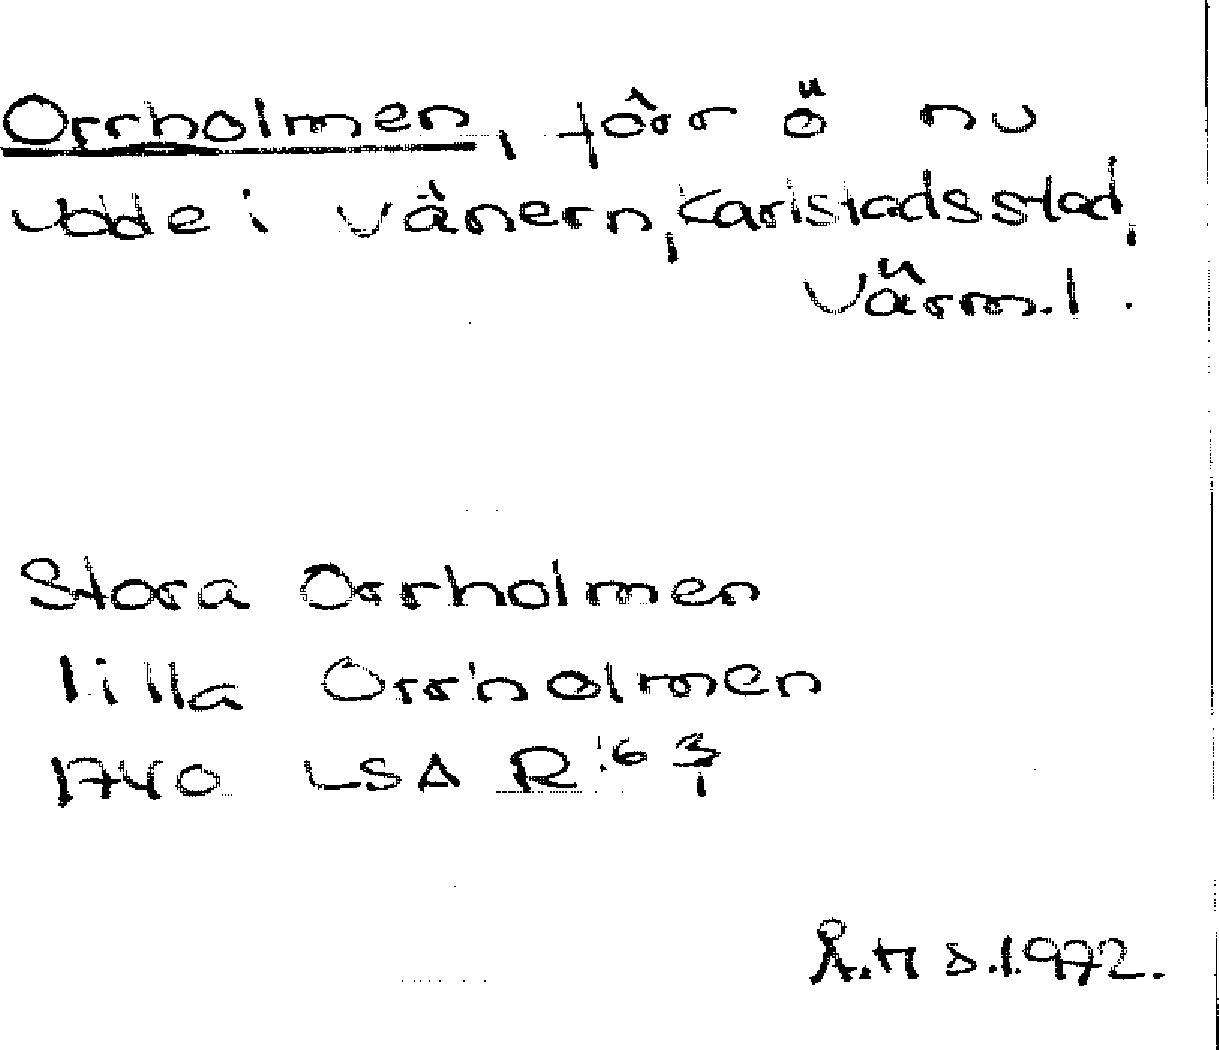 Orrholmen, förr ö nu
udde i Vänern, Karlstads stad,
Värml.
Stora Orrholmen
lilla Orrholmen
1740 LSA R 63/1
1972.